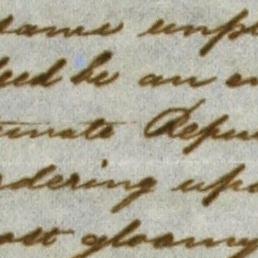 same unpl
deed be an en
tunate Repu
ndering upo
ost gloomy